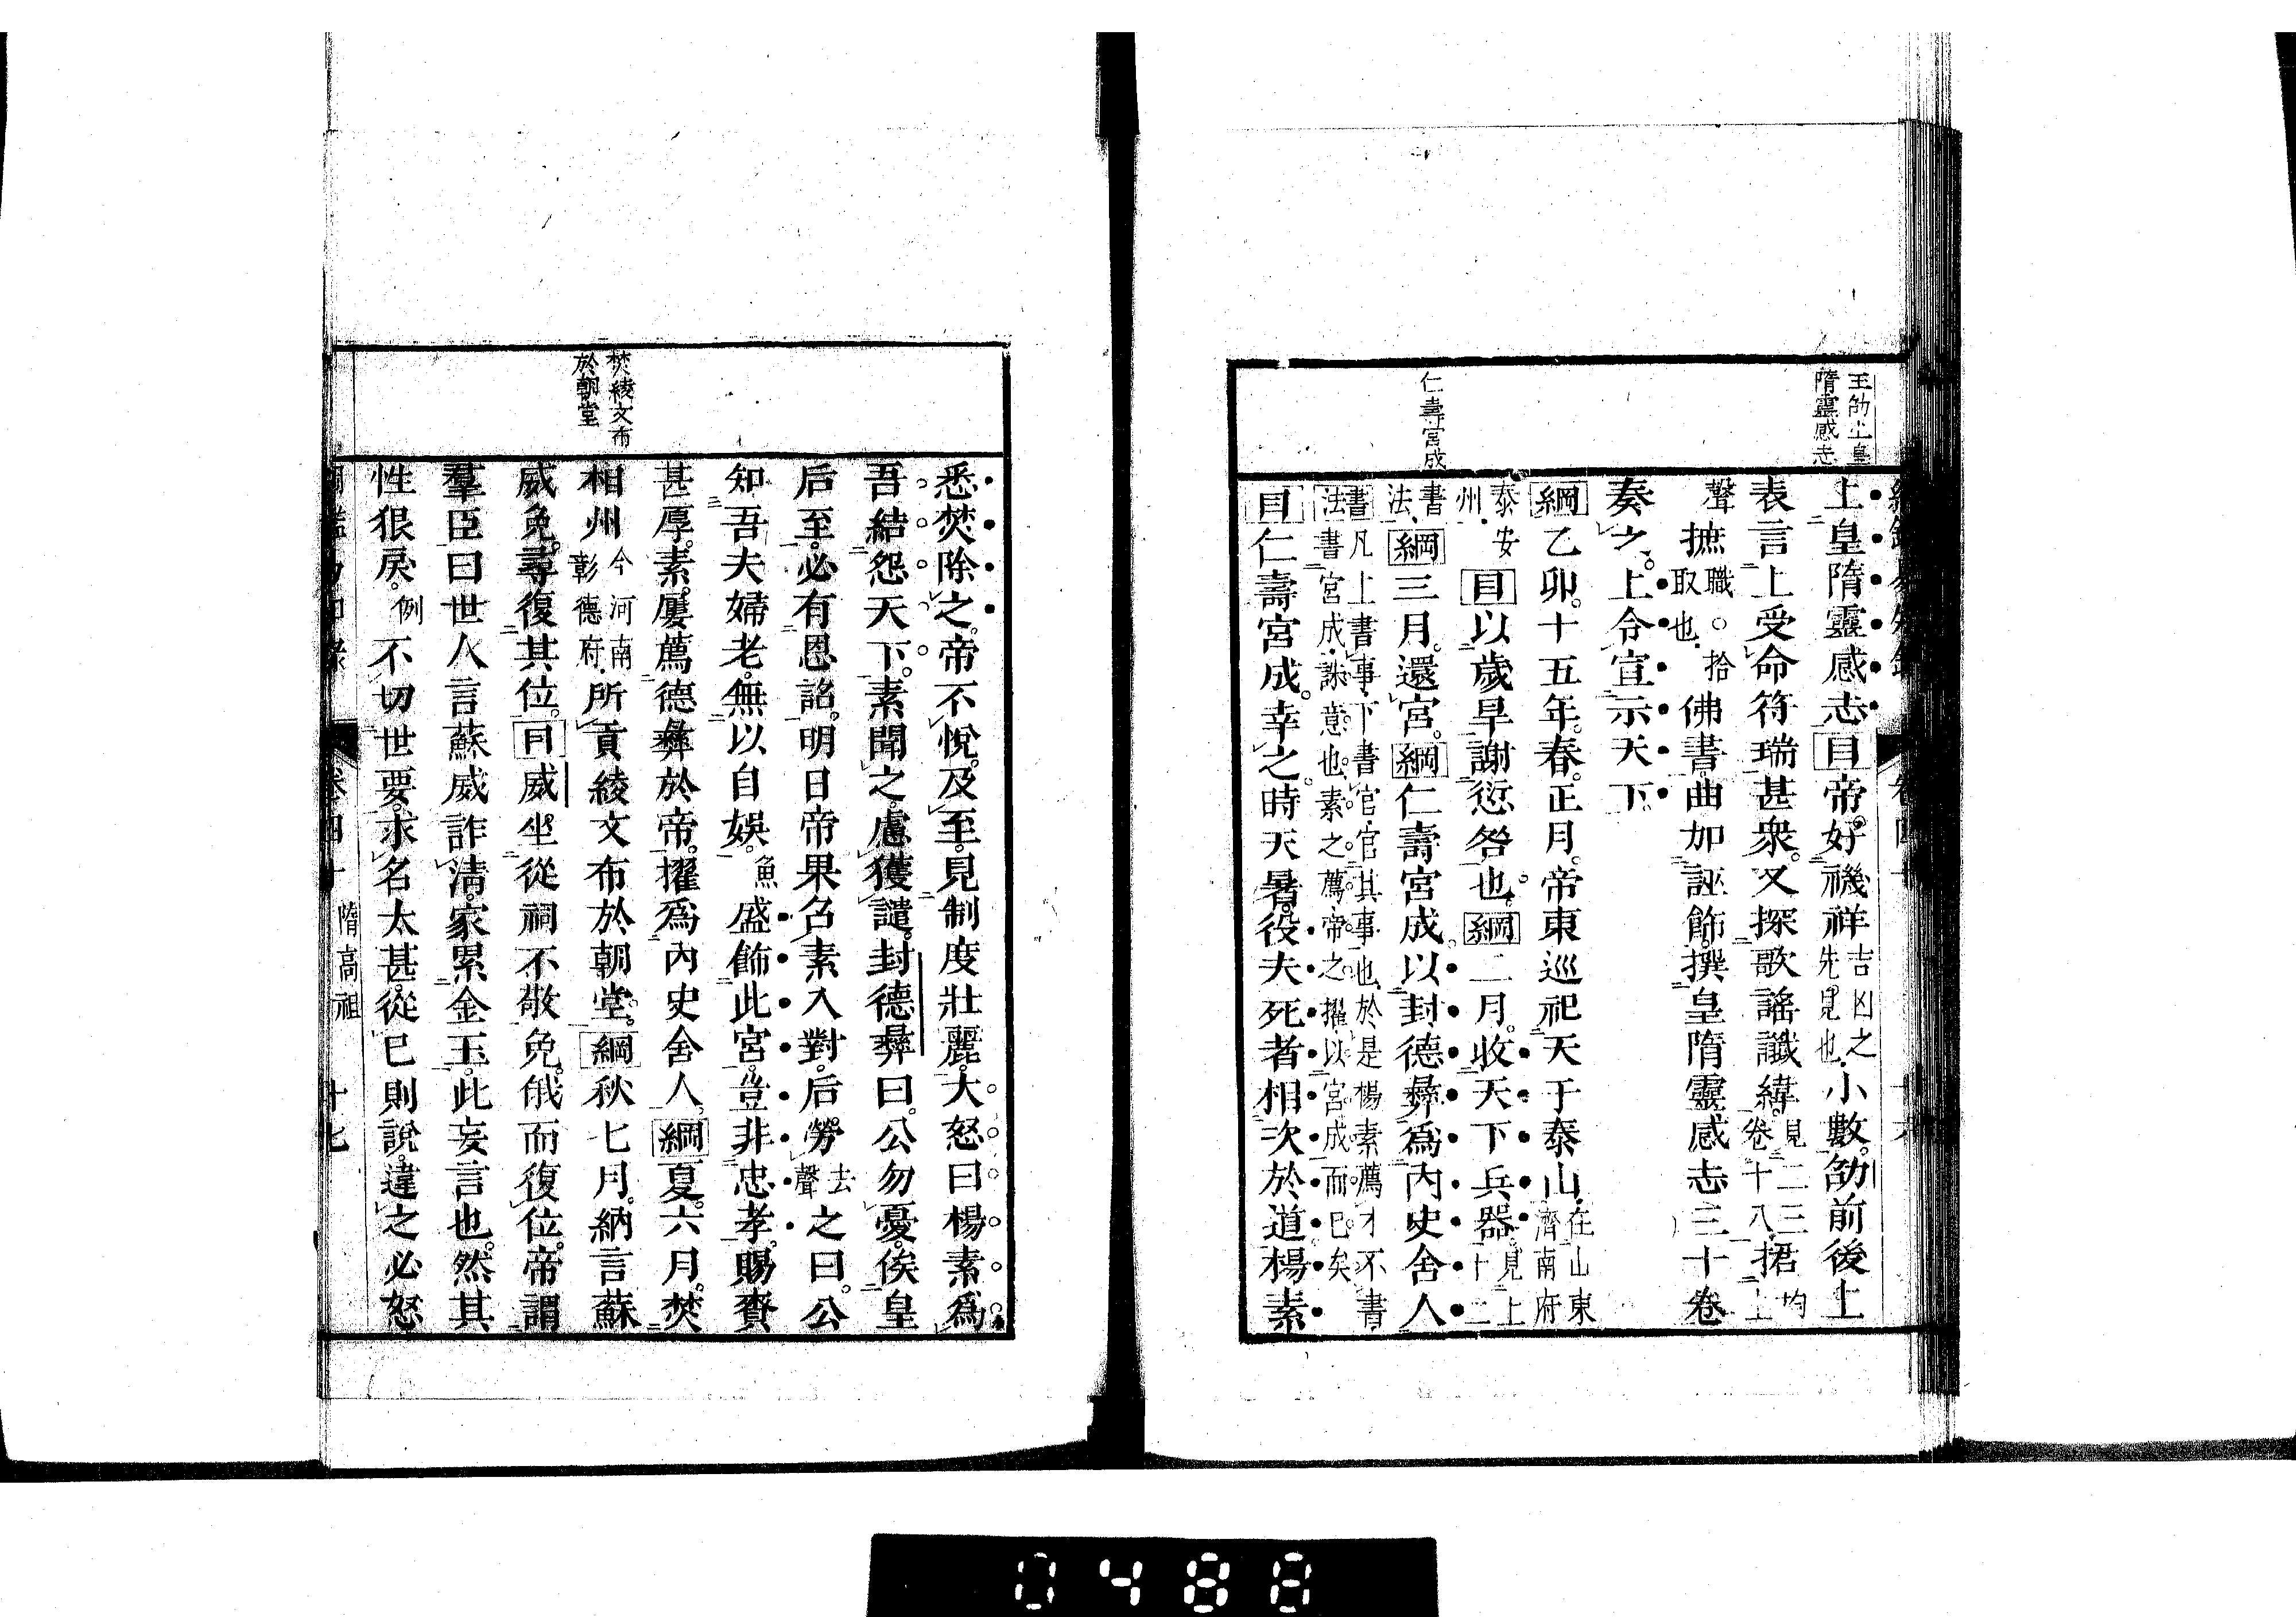 王劭上皇
隋靈感志
上皇隋靈感志目帝好禨祥吉凶之先見也小數劭前後上
表言上受命符瑞甚衆又採歌謠讖緯見二三卷十八捃均上
聲摭職拾取也佛書曲加誣飾撰皇隋靈感志三十卷
奏之上令宣示天下
綱乙卯十五年春正月帝東巡祀天于泰山在山東濟南府
泰安州目以歲旱謝愆咎也綱二月收天下兵器見上十二
書法綱三月還宮綱仁壽宮成以封德彝爲內史舍人
書法凡上書事下書官官其事也於是楊素薦才不書
書宮成誅意也素之薦帝之擢以宮成而已矣
目仁壽宮成幸之時天暑役夫死者相次於道楊素
仁壽宮成
卷四十
悉焚除之帝不悅及至見制度壯麗大怒曰楊素爲
吾結怨天下素聞之慮獲譴封德彝曰公勿憂俟皇
后至必有恩詔明日帝果召素入對后勞去聲之曰公
知吾夫婦老無以自娛魚盛飾此宮豈非忠孝賜賚
甚厚素屢薦德彝於帝擢爲內史舍人綱夏六月焚
相州今河南彰德府所貢綾文布於朝堂綱秋七月納言蘇
威免尋復其位目威坐從祠不敬免俄而復位帝謂
羣臣曰世人言蘇威詐淸家累金玉此妄言也然其
性狠戾例不切世要求名太甚從己則說違之必怒
焚綾文布
於朝堂
卷四十 隋高祖 十七
0488